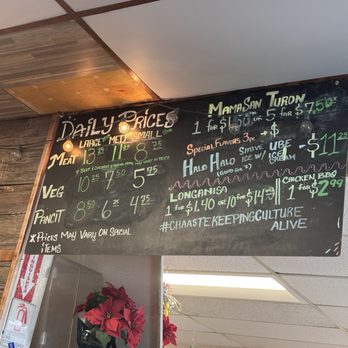 Daily Prices
Large Med Small
Meat 13.25 11 8.75
Veg 10.25 7.50 5.75
Pancit 8.50 6 4.75
* Prices May Vary on Special
Items
MamaSan Turon
1 for $1.50 or 5 for $7.50
Special Flavors 3pc → $
Halo Halo Shave Ube - $11.25
Ice w/ Ice Cream
Longanisa
1 for $1.40 or 10 for $14.00
Chicken BBQ
1 for $2.99
#CHAASTEKEEPINGCULTURE
ALIVE